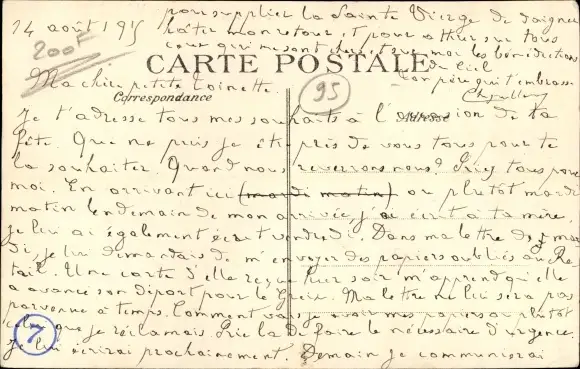 14 août 1915
200F
pour supplier la Sainte Vierge de daigner
hâter mon retour, et pour attirer sur tous
ceux qui me sont chers et sur moi les bénédictions
du Ciel.
CARTE POSTALE
Ton père qui t'embrasse
Ma chère petite Toinette.
Correspondance
95
Adresse
Je t'adresse tous mes souhaits à l'occasion de ta
fête. Que ne puis je être près de vous tous pour te
la souhaiter. Quand nous reverrons nous? Priez tous pour
moi. En arrivant ici (mardi matin) ou plutôt mardi
matin lendemain de mon arrivée, j'ai écrit à ta mère,
je lui ai également écrit vendredi. Dans ma lettre de mar
di, je lui demandais de m'envoyer des papiers oubliés au
Une carte d'elle reçue hier soir m'apprend qu'elle
a avancé son départ pour le Ma lettre ne lui sera pas
parvenue à temps. Comment vais je avoir mes papiers ou plutôt
que je réclamais. Prie la de faire le nécessaire d'urgence.
Je lui écrirai prochainement. Demain je communierai
7